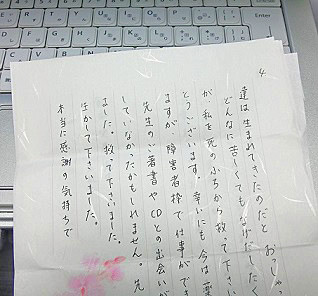 Enter
4
達は生まれてきたのだと おっしゃっ
どんなに苦しくてもなげだしたく
が 私を死のふちから救って下さい
とうございます。幸いにも今は薬
ますが、障害者枠で仕事ができ
先生のご著書やCDとの出会いが
していなかったかもしれません。先
ました。救って下さいました。
活かして下さいました。
本当に感謝の気持ちで